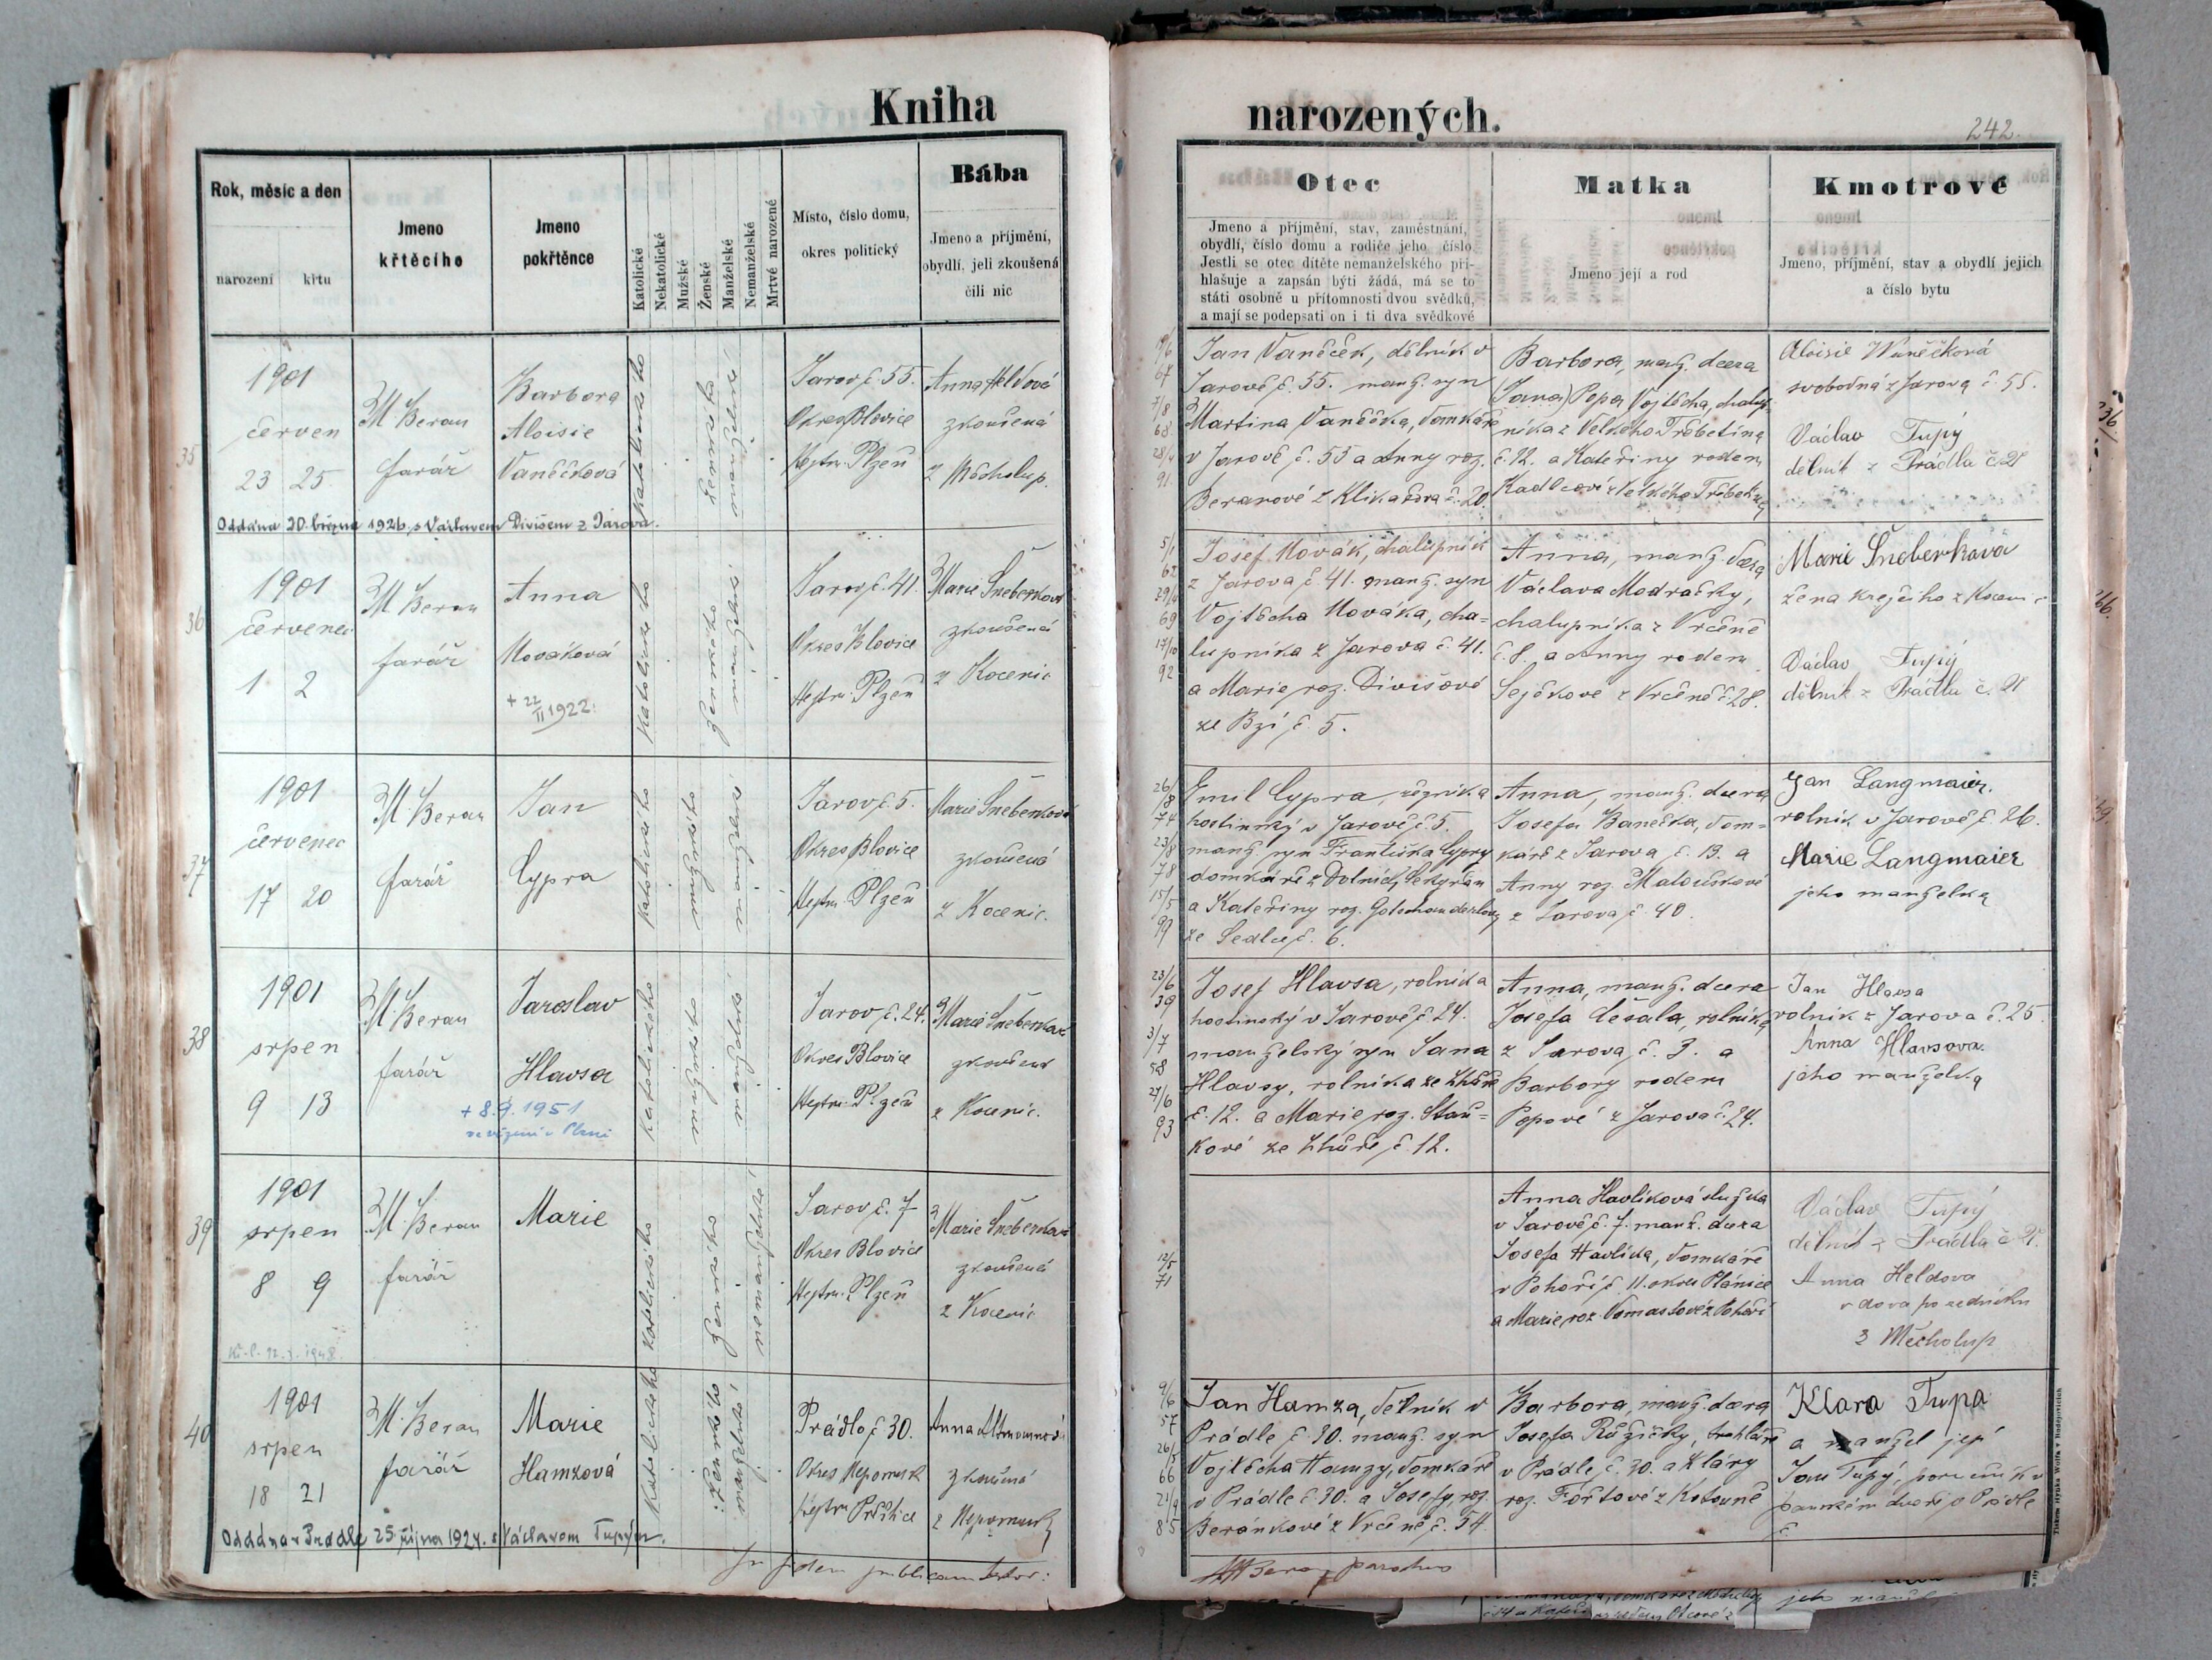 Kniha
narozených.
242.
Rok, měsíc a den
narození
křtu
Jmeno
křtěcího
Jmeno
pokřtěnce
Katolické
Nekatolické
Mužské
Ženské
Manželské
Nemanželské
Mrtvé narozené
Místo, číslo domu,
okres politický
Bába
Jmeno a příjmění,
obydlí, jeli zkoušená
čili nic
Otec
Jmeno a příjmění, stav, zaměstnání,
obydlí, číslo domu a rodiče jeho číslo
Jestli se otec dítěte nemanželského při-
hlašuje a zapsán býti žádá, má se to
státi osobně u přítomnosti dvou svědků,
a mají se podepsati on i ti dva svědkové
Matka
Jmeno její a rod
Kmotrové
Jmeno, příjmění, stav a obydlí jejich
a číslo bytu
35
1901
červen
23 25
M. Beran
farář
Barbora
Aloisie
Vaněčková
katolického
ženského
manželské
Jarov č. 55.
Okres Blovice
Hejtm. Plzeň
Anna Heldová
zkoušená
z Měcholup.
Oddána 20. března 1926. s Václavem Divišem z Jarova.
19/6
67
7/8
68
28/4
91
Jan Vaněček, dělník v
Jarově č. 55. manž. syn
Martina Vaněčka, domkáře
v Jarově č. 55 a Anny roz.
Beranové z č. 20.
Barbora, manž. dcera
(Jana) Pepa Vojtěcha, chalup-
níka z Velkého Třebetína
č. 12. a Kateřiny rodem
Kadlcové z Velkého
Aloisie Waněčková
svobodná z Jarova č. 55.
Václav Tupý
dělník z Prádla č. 21
36
1901
červenec
1 2
M. Beran
farář
Anna
Nováková
+ 22
II 1922.
katolického
ženského
manželské
Jarov č. 41.
Okres Blovice
Hejtm. Plzeň
Marie Šneberková
zkoušená
z Kocenic
5/1
62
29/4
69
17/10
92
Josef Novák, chalupník
z Jarova č. 41. manž. syn
Vojtěcha Nováka, cha-
lupníka z Jarova č. 41.
a Marie roz. Divišové
ze Bzí č. 5.
Anna, manž. dcera
Václava Modračky,
chalupníka z Vrčeně
č. 8. a Anny rodem
Sejčkové z Vrčeně č. 28.
Marie Šneberková
žena krejčího z
Václav Tupý
dělník z Prádla č. 21
37
1901
červenec
17 20
M. Beran
farář
Jan
Cypra
katolického
mužského
manželské
Jarov č. 5.
Okres Blovice
Hejtm. Plzeň
Marie Šneberková
zkoušená
z Kocenic.
26/8
74
23/8
78
15/5
99
Emil Cypra, řezník a
hostinský v Jarově č. 5.
manž. syn Františka Cypry
domkáře z Dolních Sekyřan
a Kateřiny roz.
ze Sedlce č. 6.
Anna, manž. dcera
Josefa Banečka, dom-
káře z Jarova č. 13. a
Anny roz. Matouškové
z Jarova č. 40.
Jan Langmaier,
rolník v Jarově č. 26.
Marie Langmaier
jeho manželka
38
1901
srpen
9 13
M. Beran
farář
Jaroslav
Hlavsa
+ 8.9.1951
ve vězení v Plzni
katolického
mužského
manželské
Jarov č. 24.
Okres Blovice
Hejtm. Plzeň
Marie Šneberková
zkoušená
z Kocenic.
23/6
39
3/7
58
27/6
93
Josef Hlavsa, rolník a
hostinský v Jarově č. 24.
manželský syn Jana
Hlavsy, rolníka ze Lhůře
č. 12. a Marie roz. Staň-
kové ze Lhůře č. 12.
Anna, manž. dcera
Josefa Češala, rolníka
z Jarova č. 3. a
Barbory rodem
Popové z Jarova č. 24.
Jan Hlavsa
rolník z Jarova č. 25
Anna Hlavsova.
jeho manželka
39
1901
srpen
8 9
M. Beran
farář
Marie
katolického
ženského
nemanželské
Jarov č. 7
Okres Blovice
Hejtm. Plzeň
Marie Šneberková
zkoušená
z Kocenic
12/5
71
Anna Havlíková služka
v Jarově č. 7. manž. dcera
Josefa Havlíka, domkáře
v Pohoří č. 11. okres Plánice
a Marie roz. z Pohoří
Václav Tupý
dělník z Prádla č. 21.
Anna Heldova
vdova po zedníku
z Měcholup
40
1901
srpen
18 21
M. Beran
farář
Marie
Hamzová
Katolického
ženského
manželské
Prádlo č. 30.
Okres Nepomuk
Hejtm. Přeštice
Anna Altmannová
zkoušená
z Nepomuk
Oddána v Prádle 25. října 1924. s Václavem Tupým.
9/6
57
26/5
66
21/9
85
Jan Hamza, dělník v
Prádle č. 30. manž. syn
Vojtěcha Hamzy, domkáře
v Prádle č. 30. a Josefy, roz.
Beránkové z Vrčeně č. 54.
Barbora, manž. dcera
Josefa Růžičky, truhláře
v Prádle č. 30. a Kláry
roz. Foštové z Kotouně
Klara Tupa
a manžel její
Jan Tupý,
panském dvoře v Prádle
č.
In fidem publicam testor:
M Beran parochus